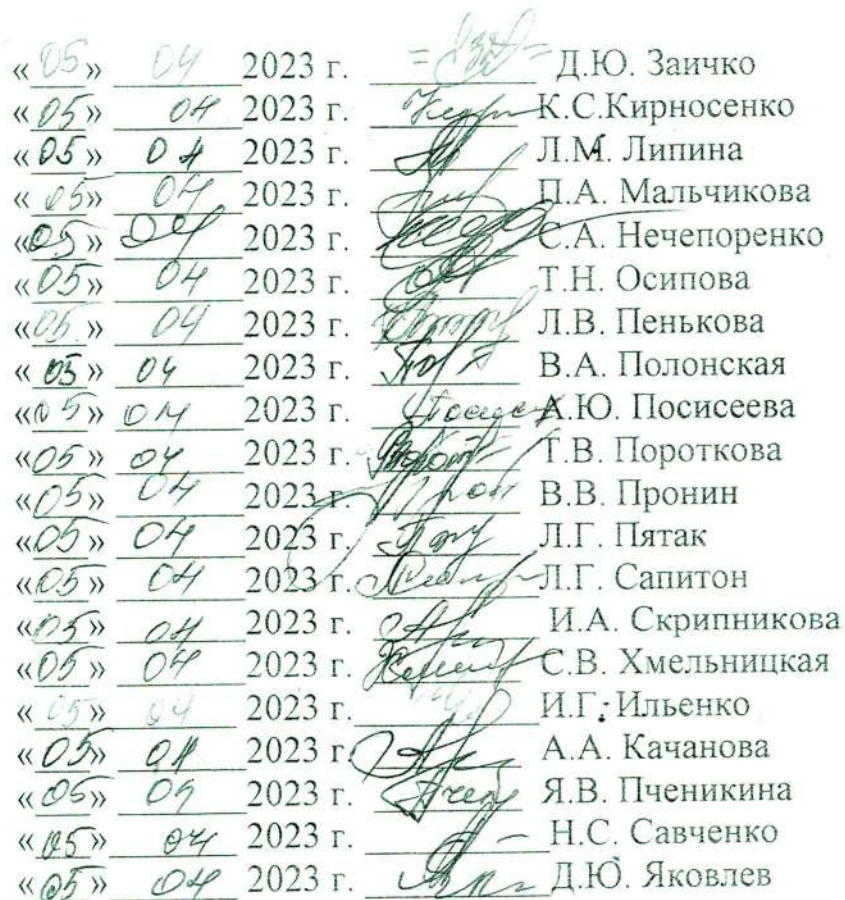 «05» 04 2023 г. Д.Ю. Заичко
«05» 04 2023 г. К.С.Кирносенко
«05» 04 2023 г. Л.М. Липина
«05» 04 2023 г. П.А. Мальчикова
«05» 04 2023 г. С.А. Нечепоренко
«05» 04 2023 г. Т.Н. Осипова
«05» 04 2023 г. Л.В. Пенькова
«05» 04 2023 г. В.А. Полонская
«05» 04 2023 г. А.Ю. Посисеева
«05» 04 2023 г. Т.В. Пороткова
«05» 04 2023 г. В.В. Пронин
«05» 04 2023 г. Л.Г. Пятак
«05» 04 2023 г. Л.Г. Сапитон
«05» 04 2023 г. И.А. Скрипникова
«05» 04 2023 г. С.В. Хмельницкая
«05» 04 2023 г. И.Г. Ильенко
«05» 04 2023 г. А.А. Качанова
«05» 04 2023 г. Я.В. Пченикина
«05» 04 2023 г. Н.С. Савченко
«05» 04 2023 г. Д.Ю. Яковлев